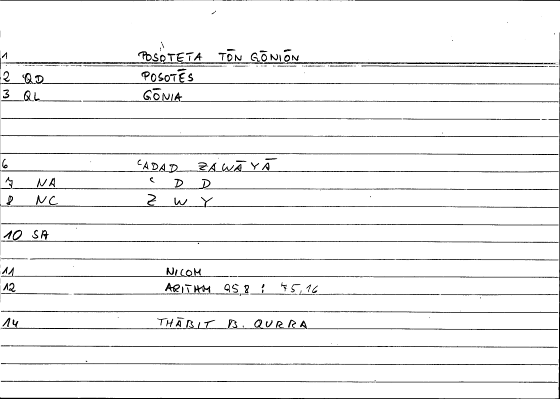 1 POSOTETA TŌN GŌNIŌN
2 QD POSOTĒS
3 QL GŌNIA
6 ʿADAD ZAWĀYĀ
7 NA ʿ D D
8 NC Z W Y
10 SA
11 NICOM
12 ARITHM 95,8 : 75,16
14 THĀBIT B. QURRA